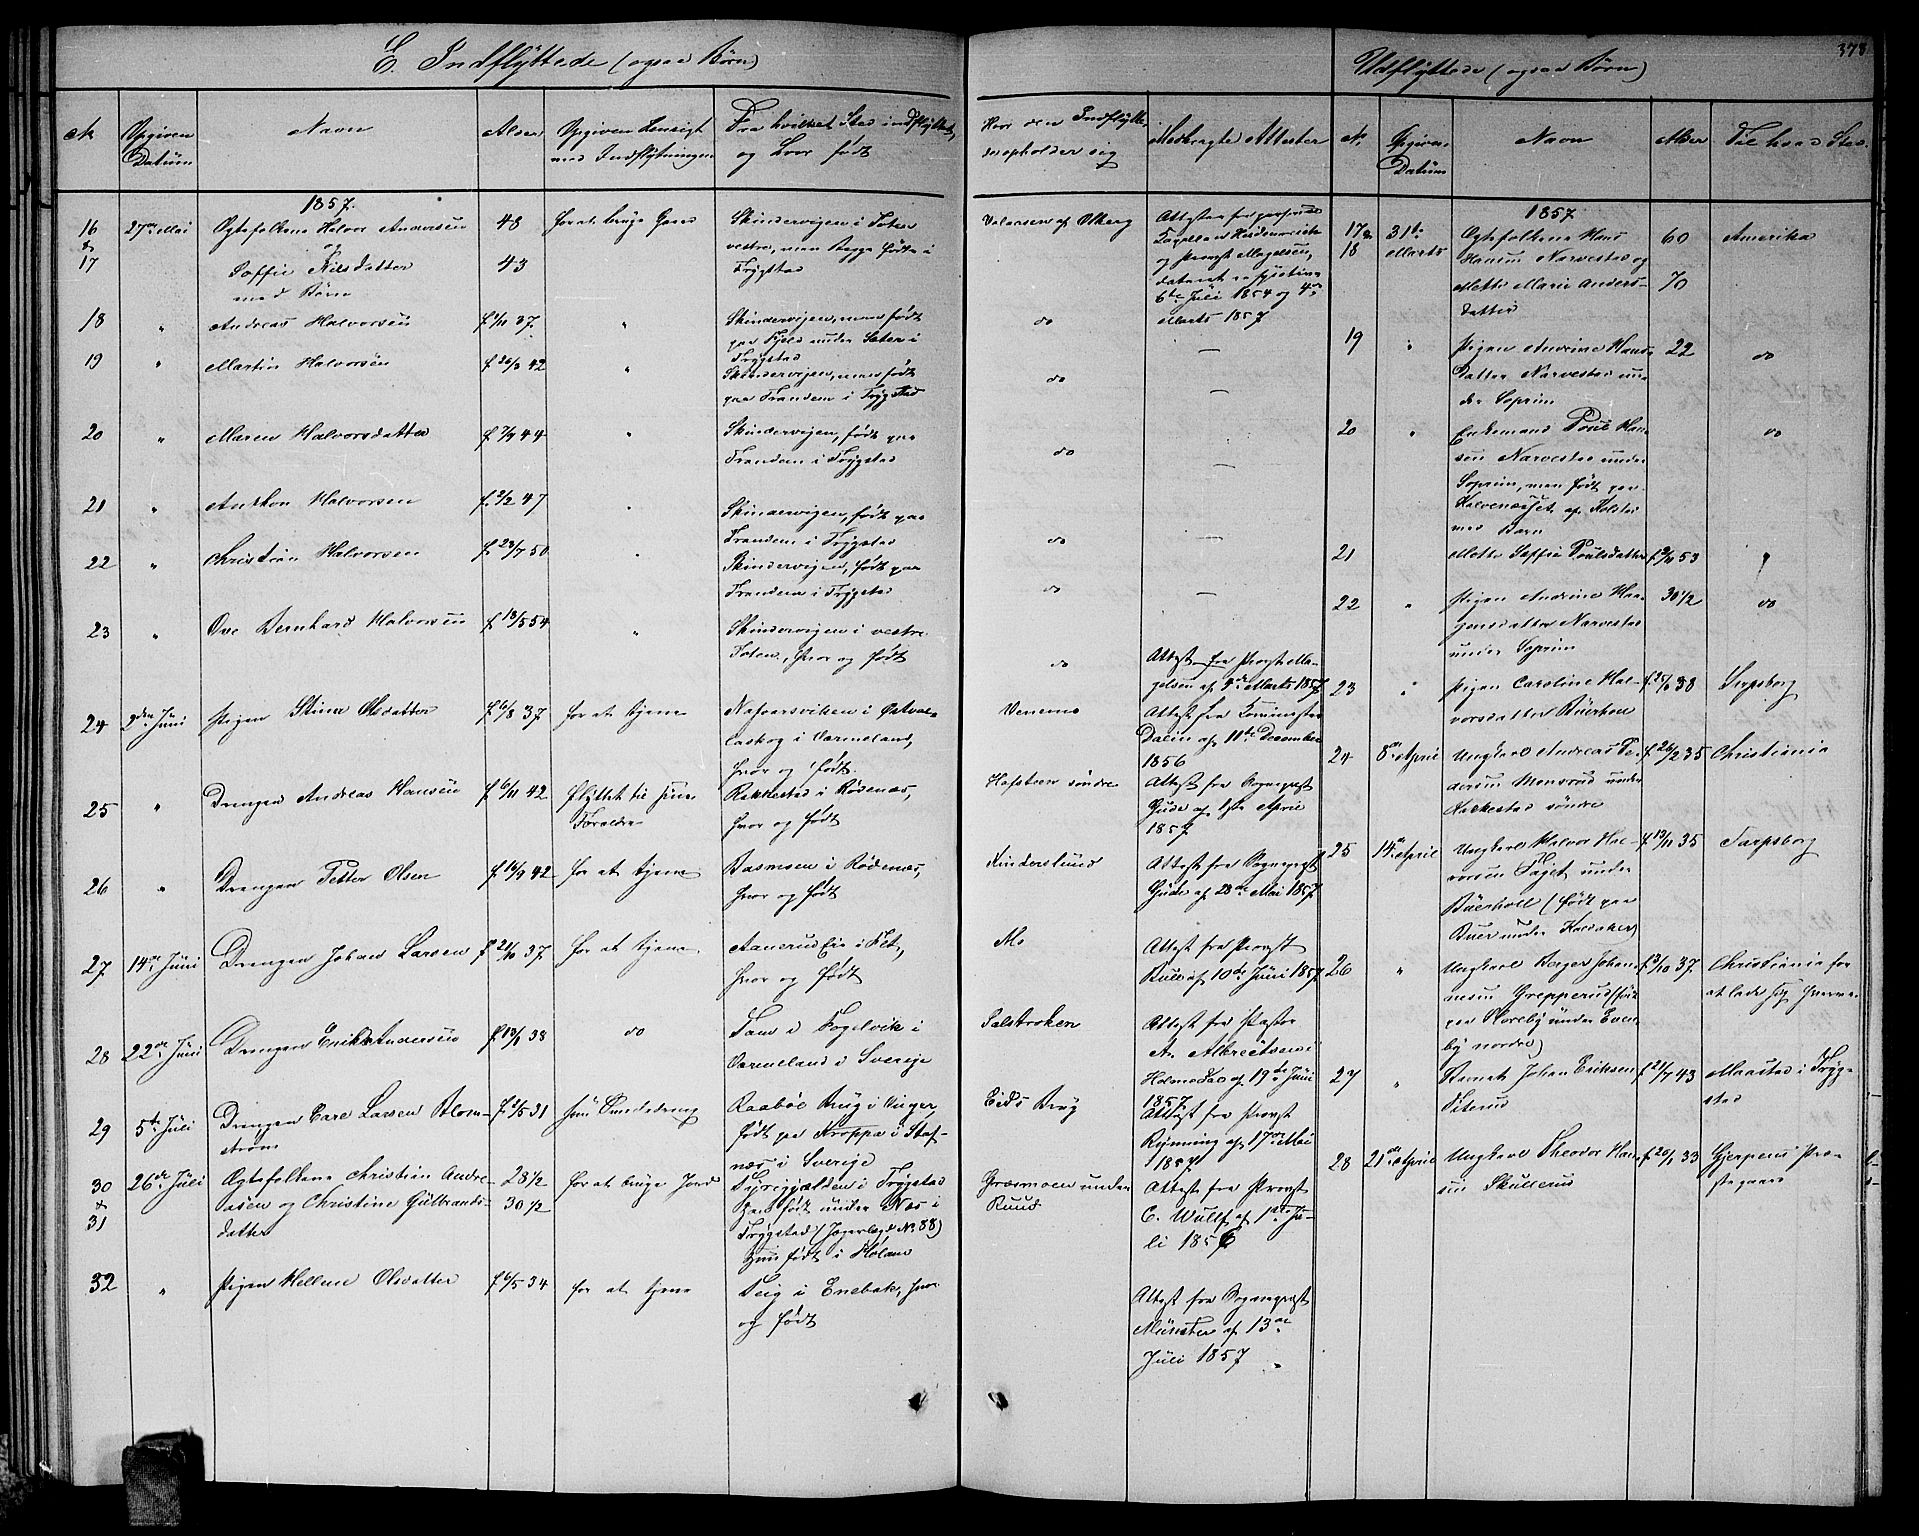 E. Indflÿttede (ogsaa Børn)
Udflÿttede (ogsaa Børn)
378
N
Opgiven Datüm
Navn
Alder
Opgiven Hensigt med Indflÿtningen
Fra hvilket Sted indflÿttet, og hvor født
Hvor den Indflÿttede opholder sig
Medbragte Attester
N.
Opgiven Datüm
Navn
Alder
Til hvad Sted
1857.
16 & 17
27de Mai
Ogtefolkene Halvor Andersen og
48
for at bruge Gaard
Skindervigen i Toten vestre, men begge fødte i Trÿgstad
Valersen af Olberg
Soffie Nilsdatter
43
med Børn
6te Jüli 1854 og 4de Marts 1857
18
"
Andreas Halvorsen
f. 1/11 37.
"
Skindervigen, men født paa Fjeld under Sæter i Trÿgstad
do
—
19
"
Martin Halvorsen
f 26/3 42
"
Skindervigen, men født paa Frandem i Trÿgstad
do
—
20
"
Maren Halvorsdatter
f. 7/9 44
"
Skindervigen, født paa Frandem i Trÿgstad
do
—
21
"
Anthon Halvorsen
f. 2/2 47
"
Skindervigen, født paa Frandem i Trÿgstad
do
—
22
"
Christian Halvorsen
f. 23/7 50
"
Skindervigen, født paa Frandem i Trÿgstad
do
—
23
"
Ove Bernhard Halvorsen
f 13/5 54
"
Skindervigen i vestre Toten, hvor og født
do
Attest fra Provst Magelsen af 4de Marts 1857
24
2den Jüni
Pigen Stina Olsdatter
f. 6/8 37
for at tjene
i Værmeland, hvor og født.
Venemo
Attest fra Kominister Dalin af 11te December 1856
25
"
Drengen Andreas Hansen
f 6/11 42
Flÿttet til sine Forældre
Rakkestad i Rødenæs, hvor og født
Hafsteen søndre
Attest fra Sogneprest Gude af 1ste April 1857
26
"
Drengen Petter Olsen
f 14/9 42
for at tjene
Basmoen i Rødenæs, hvor og født
Kinderslund
Attest fra Sogneprest Gude af 28de Mai 1857
27
14de Jüni
Drengen Johan Larsen
f 21/10 37
for at tjene
Aanerud Eie i Fet, hvor og født
Mo
Attest fra Provst Bull af 10de Jüni 1857
28
22de Jüni
Drengen Erik Andersen
f 13/1 38
do
Tam i Fogelvik i Værmeland i Sverige
Salstroken
Attest fra Pastor A. Albrectsen i Holmedal af 19de Jüni 1857
29
5te Jüli
Drengen Carl Larsen Blomstrøm
f 2/5 31
Raaböl Brug i Vinger, født paa Kroppa i Stafnæs i Sverige
Eids Brug
Attest fra Provst Rÿnning af 17de Mai 1857
30 & 31
26de Jüli
Ogtefolkene Christian Andreasen og Christine Gülbrandsdatter
28 1/2
30 1/2
for at bruge Jord
i Trÿgstad Han født under Næs i Trÿgstad (Jægerlægd No 88) Hun født i Høland
Grasmoen under Ruud
Attest fra Provst C. Wulf af 1ste Jüli 1856
32
"
Pigen Hellene Olsdatter
f. 6/5 34
for at tjene
Teig i Enebak, hvor og født
Attest fra Sogneprest Münster af 13de Jüli 1857
1857
17 & 18
31te Marts
Ogtefolkene Hans Hansen Narvestad og Mette Marie Andersdatter
60
70
Amerika
19
"
Pigen Andrine Hansdatter Narvestad under Soprim
22
do
20
"
Enkemand Poul Hansen Narvestad under Soprim, men født paa Kalvenæsset af Kolstad med Barn
do
21
Mette Soffie Poulsdatter
f 9/11 53
"
22
"
Pigen Andrine Haagensdatter Narvestad under Soprim
30 1/2
do
23
"
Pigen Caroline Halvorsdatter Büerhol
38
Sarpsborg
24
8de April
Ungkarl Andreas Pedersen Monsrud under Hackestad søndre
f. 26/2 35
Christiania
25
14de April
Ungkarl Halvor Halvorsen Taget under Büerholl (født paa Buer under Haraker)
f. 19/11 35
Sarpsborg
26
"
Ungkarl Berger Johannesen Grepperud (født paa Skorebÿ under Evenbÿ nordre)
f. 3/10 37.
Christiania for at lade sig hverve
27
"
Johan Eriksen Viterud
f. 21/7 43
Maastad i Trÿgstad
28
21de April
Ungkarl Theodor Hansen Skullerud
f. 20/1 33
Gjerpens Præstegaard